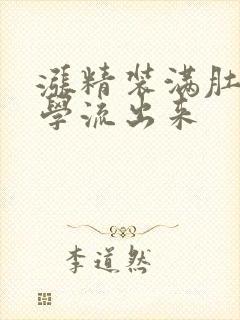 漲精装满肚
學流出来
李道然